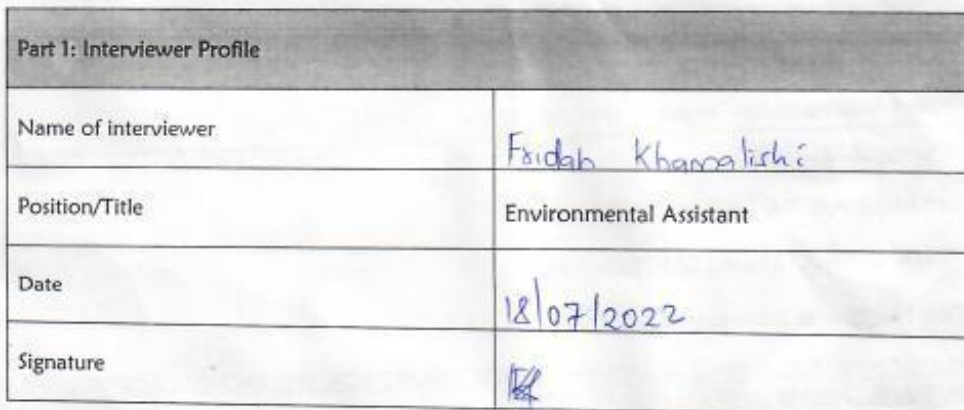 Part 1: Interviewer Profile
Name of interviewer
Fridah Khamalishi
Position/Title
Environmental Assistant
Date
18/07/2022
Signature